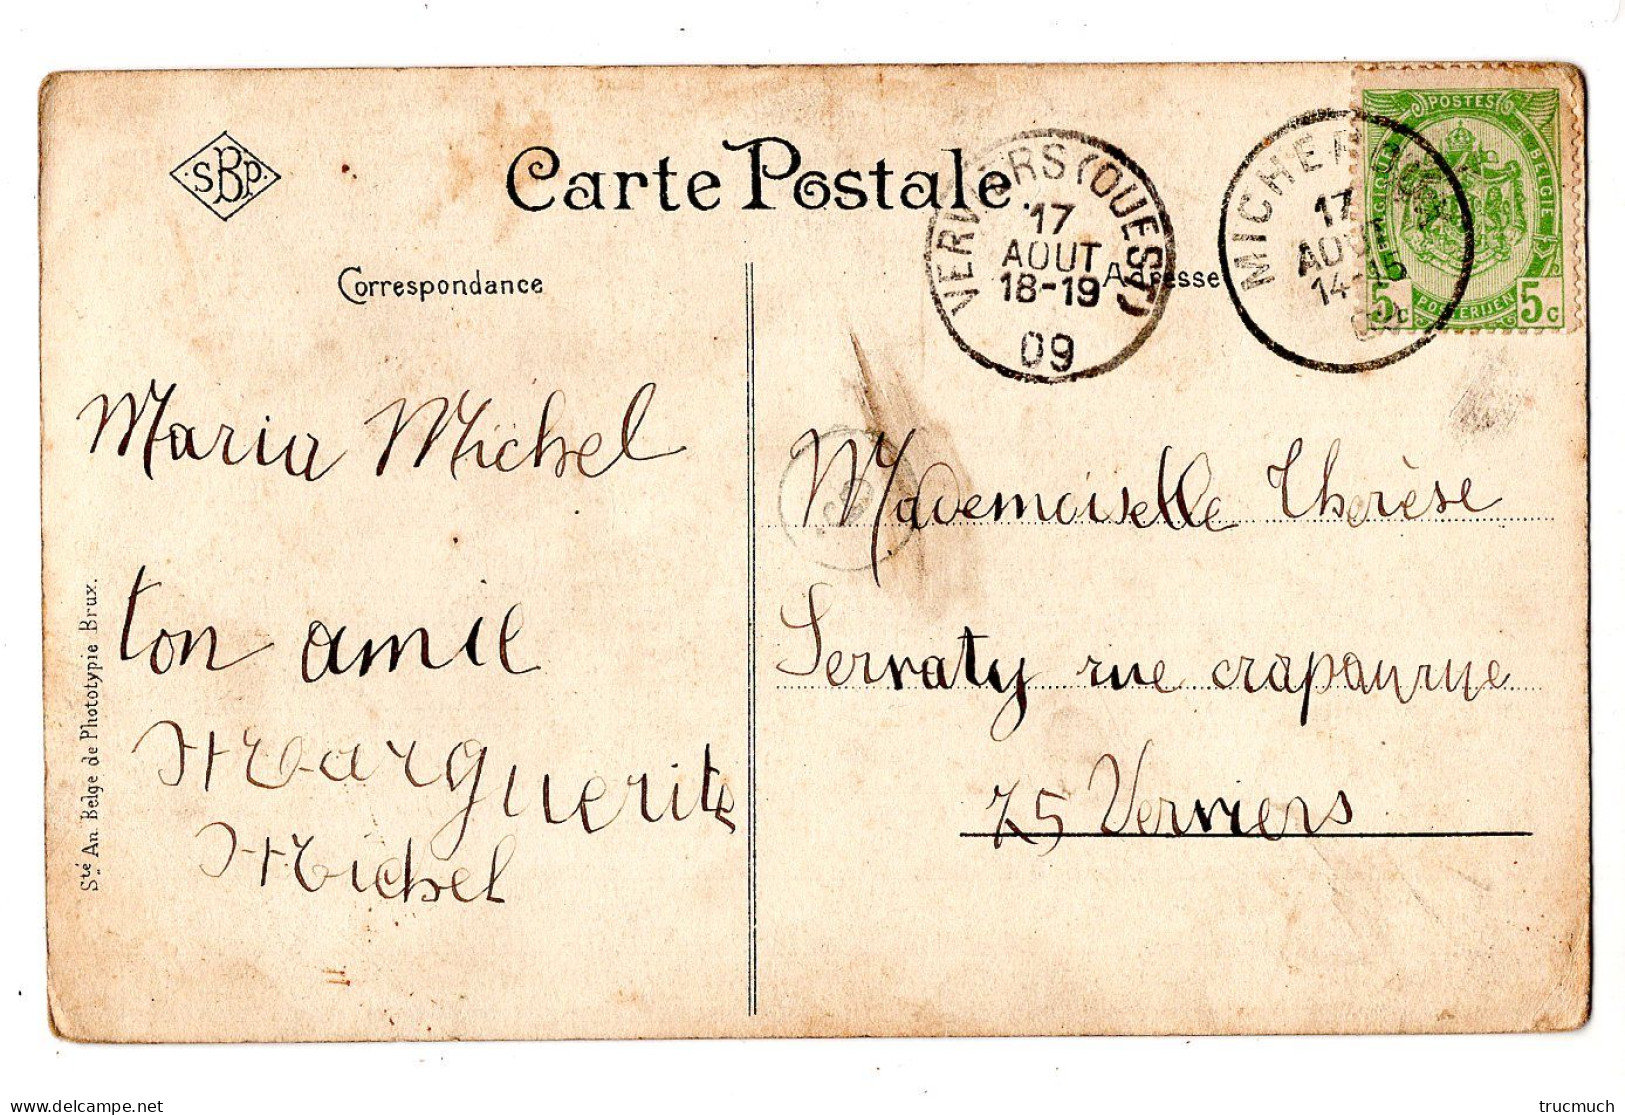 SBP
Carte Postale.
Correspondance
Adresse
VERVIERS (OUEST)
17
AOUT
18-19
09
MICHEROUX
17
AOUT
14-15
POSTES
BELGIQUE
BELGIE
POSTERIJEN
5c 5c
Maria Michel
ton amie
Marguerite
Michel
Mademoiselle Thérèse
Servaty rue crapaurue
75 Verviers
Sté An. Belge de Phototypie Brux.
trucmuch